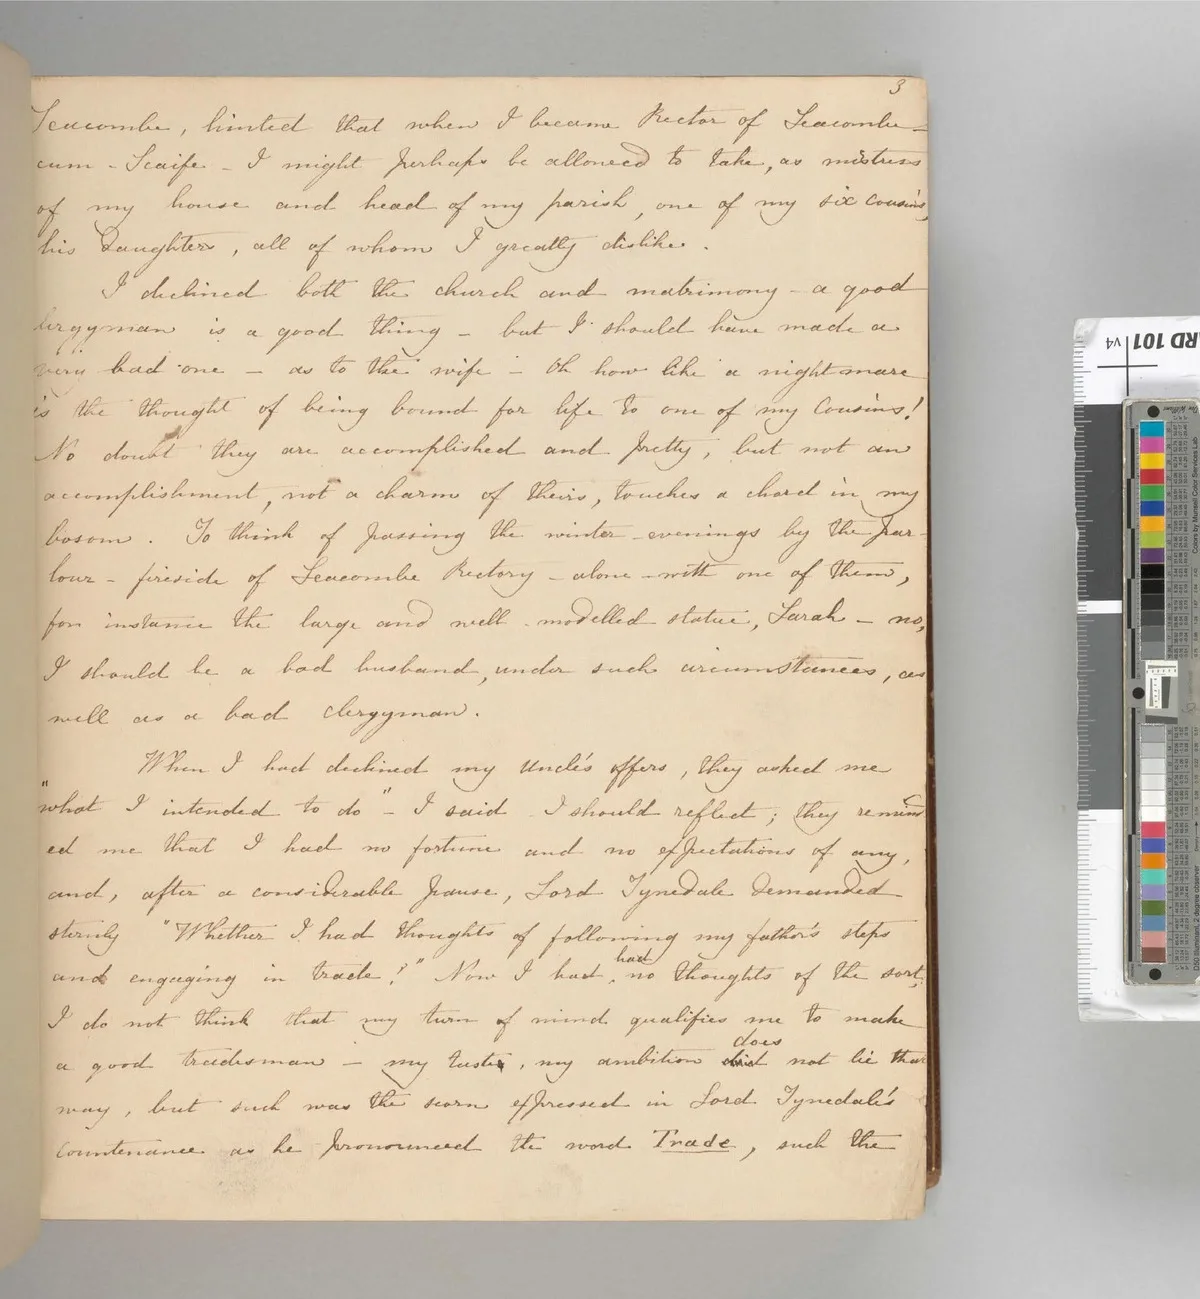 3
Seacombe, hinted that when I became Rector of Seacombe -
cum - Scaife - I might perhaps be allowed to take, as mistress
of my house and head of my parish, one of my six cousins,
his Daughters, all of whom I greatly dislike.
I declined both the church and matrimony - a good
clergyman is a good thing - but I should have made a
very bad one - as to the wife - Oh how like a nightmare
is the thought of being bound for life to one of my Cousins!
No doubt they are accomplished and pretty, but not an
accomplishment, not a charm of theirs, touches a chord in my
bosom. To think of passing the winter-evenings by the par-
lour - fireside of Seacombe Rectory - alone - with one of them,
for instance the large and well-modelled statue, Sarah - no,
I should be a bad husband, under such circumstances, as
well as a bad clergyman.
When I had declined my Uncle's offers, they asked me
"what I intended to do" - I said I should reflect; they remind
ed me that I had no fortune and no expectations of any,
and, after a considerable pause, Lord Tynedale demanded
sternly "Whether I had thoughts of following my father's steps
and engaging in trade?" Now I had had no thoughts of the sort;
I do not think that my turn of mind qualifies me to make
a good tradesman - my taste, my ambition does not lie that
way, but such was the scorn expressed in Lord Tynedale's
countenance as he pronounced the word Trade, such the
v4 CARD 101